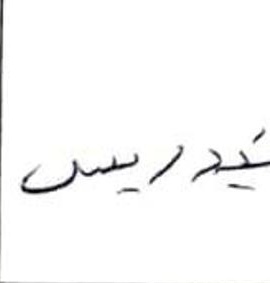 بتدريس